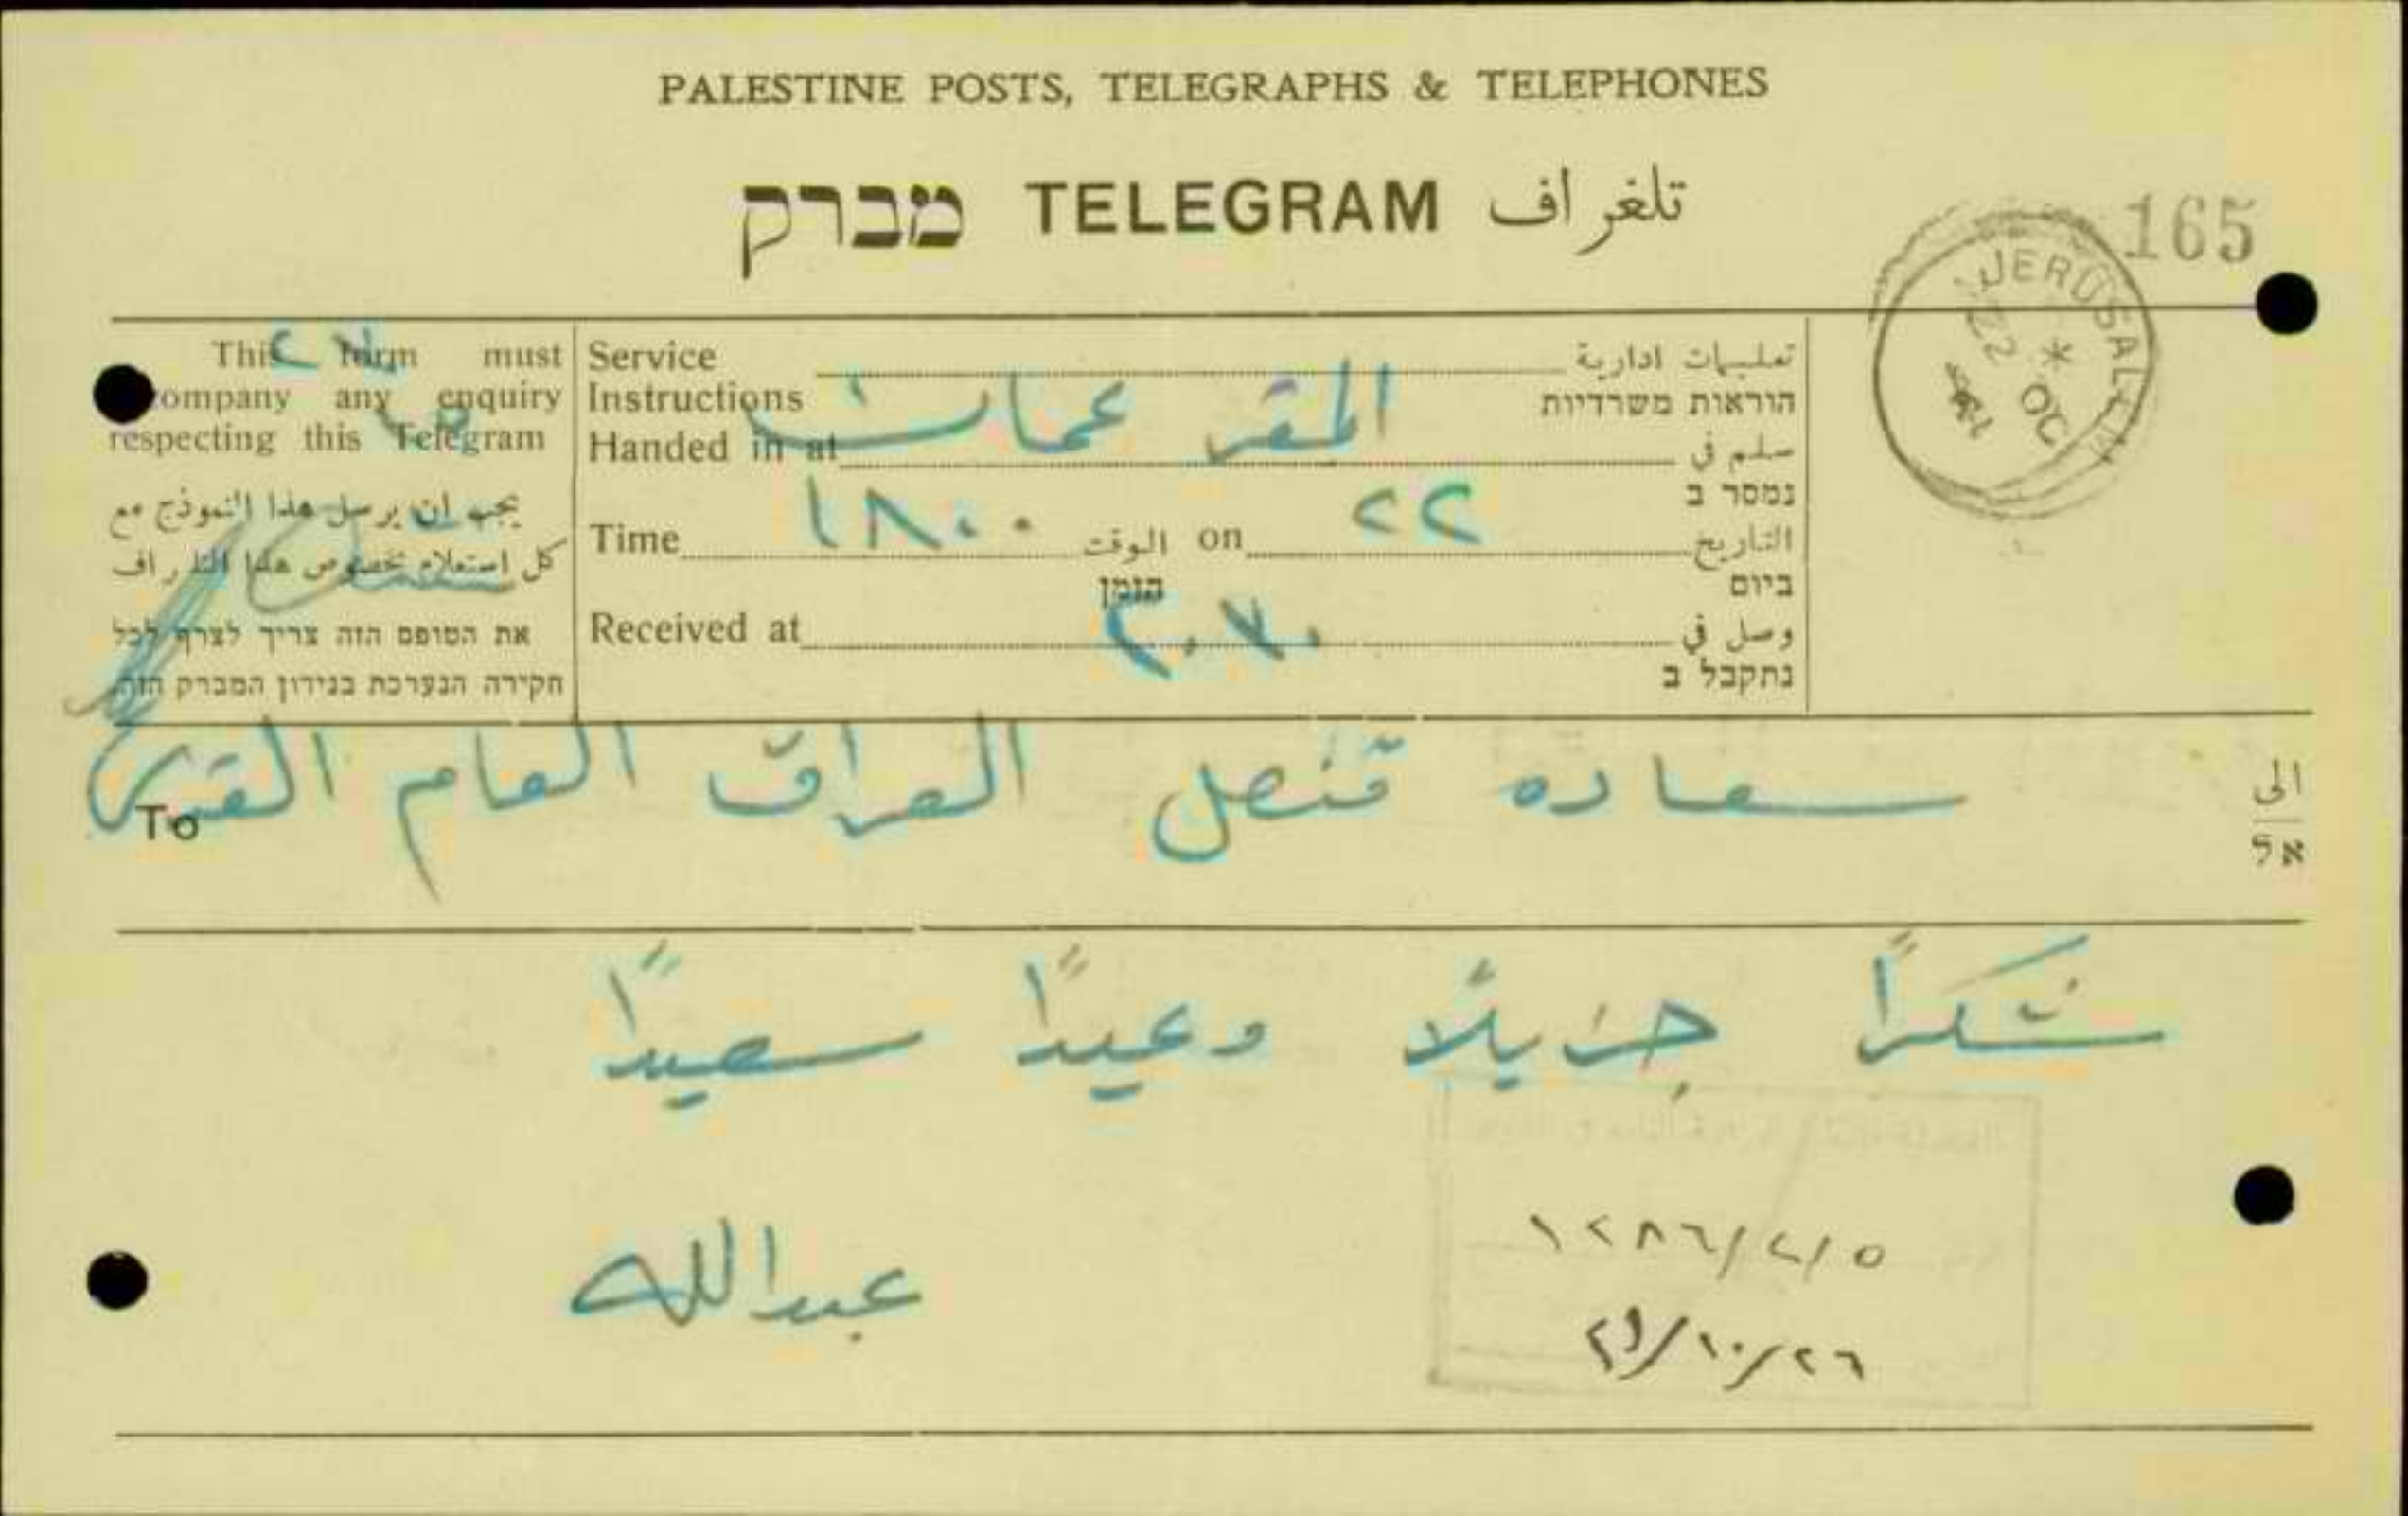 PALESTINE POSTS, TELEGRAPHS & TELEPHONES
מברק TELEGRAM تلغراف
165
JERUSALEM
22 OC
This form must
company any enquiry
respecting this Telegram
يجب ان يرسل هذا النموذج مع
كل استعلام بخصوص هذا التلغراف
את הטופס הזה צריך לצרף לכל
חקירה הנערכת בנידון המברק הזה
Service تعليمات ادارية
Instructions הוראות משרדיות
المقر عمان
Handed in at سلم في
נמסר ב
Time ١٨٠٠ الوقت on ٢٢ التاريخ
הזמן ביום
Received at ٢٠٧٠ وصل في
נתקבל ב
To سعاده قنصل العراق العام القدس الى
אל
شكراً جزيلاً وعيداً سعيداً
عبدالله
١٢٨٦/٢/٥
٤١/١٠/٢٦